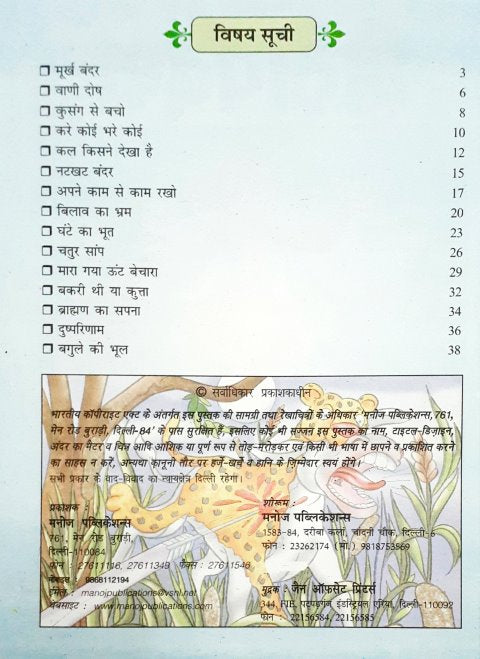 विषय सूची
❒ मूर्ख बंदर 3
❒ वाणी दोष 6
❒ कुसंग से बचो 8
❒ करे कोई भरे कोई 10
❒ कल किसने देखा है 12
❒ नटखट बंदर 15
❒ अपने काम से काम रखो 17
❒ बिलाव का भ्रम 20
❒ घंटे का भूत 23
❒ चतुर सांप 26
❒ मारा गया ऊंट बेचारा 29
❒ बकरी थी या कुत्ता 32
❒ ब्राह्मण का सपना 34
❒ दुष्परिणाम 36
❒ बगुले की भूल 38
© सर्वाधिकार प्रकाशकाधीन
भारतीय कॉपीराइट एक्ट के अंतर्गत इस पुस्तक की सामग्री तथा रेखाचित्रों के अधिकार 'मनोज पब्लिकेशन्स, 761,
मेन रोड बुराड़ी, दिल्ली-84' के पास सुरक्षित हैं, इसलिए कोई भी सज्जन इस पुस्तक का नाम, टाइटल-डिज़ाइन,
अंदर का मैटर व चित्र आदि आंशिक या पूर्ण रूप से तोड़-मरोड़कर एवं किसी भी भाषा में छापने व प्रकाशित करने
का साहस न करें, अन्यथा क़ानूनी तौर पर हर्जे-खर्चे व हानि के ज़िम्मेदार स्वयं होंगे।
सभी प्रकार के वाद-विवाद का न्यायक्षेत्र दिल्ली रहेगा।
प्रकाशक :
मनोज पब्लिकेशन्स
761, मेन रोड बुराड़ी,
दिल्ली-110084
फोन : 27611116, 27611349 फैक्स : 27611546
मोबाइल : 9868112194
ईमेल : manojpublications@vsnl.net
वेबसाइट : www.manojpublications.com
शोरूम :
मनोज पब्लिकेशन्स
1583-84, दरीबा कलां, चांदनी चौक, दिल्ली-6
फोन : 23262174 (मो.) 9818753569
मुद्रक : जैन ऑफ़सेट प्रिंटर्स
344, FIE, पटपड़गंज इंडस्ट्रियल एरिया, दिल्ली-110092
फोन : 22156584, 22156585